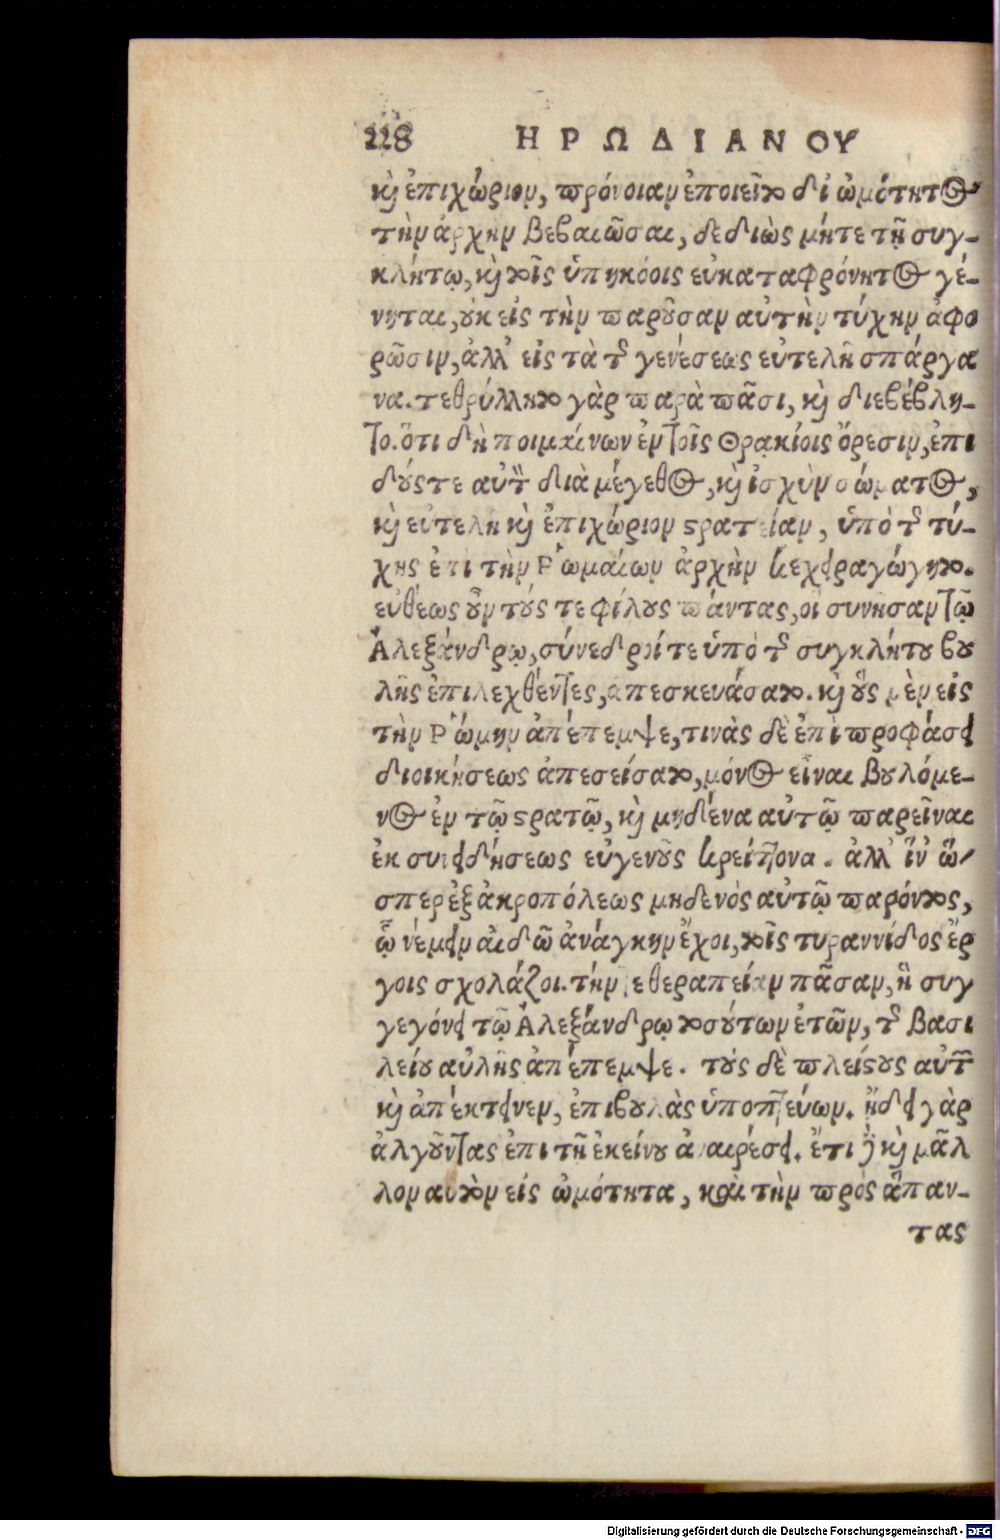 228 ΗΡΩΔΙΑΝΟΥ
καὶ ἐπιχώριον, πρόνοιαν ἐποιεῖτο δι' ὠμότητος
τὴν ἀρχὴν βεβαιῶσαι, δεδιὼς μήτε τῇ συγ-
κλήτῳ, καὶ τοῖς ὑπηκόοις εὐκαταφρόνητος γέ-
νηται, οὐκ εἰς τὴν παροῦσαν αὐτὴν τύχην ἀφο
ρῶσιν, ἀλλ' εἰς τὰ τῆς γενέσεως εὐτελῆ σπάργα
να. τεθρύλλητο γὰρ παρὰ πᾶσι, καὶ διεβέβλη-
το. ὅτι δὴ ποιμαίνων ἐν τοῖς Θρᾳκίοις ὄρεσιν, ἐπι
δούς τε αὐτὸν διὰ μέγεθος, καὶ ἰσχὺν σώματος,
καὶ εὐτελῆ καὶ ἐπιχώριον στρατείαν, ὑπὸ τῆς τύ-
χης ἐπὶ τὴν Ῥωμαίων ἀρχὴν κεχειραγώγητο.
εὐθέως οὖν τούς τε φίλους πάντας, οἳ συνῆσαν τῷ
Ἀλεξάνδρῳ, σύνεδροί τε ὑπὸ τῆς συγκλήτου βου
λῆς ἐπιλεχθέντες, ἀπεσκευάσατο. καὶ οὓς μὲν εἰς
τὴν Ῥώμην ἀπέπεμψε, τινὰς δὲ ἐπὶ προφάσει
διοικήσεως ἀπεσείσατο, μόνος εἶναι βουλόμε-
νος ἐν τῷ στρατῷ, καὶ μηδένα αὐτῷ παρεῖναι
ἐκ συνειδήσεως εὐγενοῦς κρείττονα. ἀλλ' ἵν' ὥ-
σπερ ἐξ ἀκροπόλεως μηδενὸς αὐτῷ παρόντος,
ᾧ νέμειν αἰδῶ ἀνάγκην ἔχοι, τοῖς τυραννίδος ἔρ
γοις σχολάζοι. τήν τε θεραπείαν πᾶσαν, ἣ συγ
γεγόνει τῷ Ἀλεξάνδρῳ τοσούτων ἐτῶν, τῆς βασι
λείου αὐλῆς ἀπέπεμψε. τοὺς δὲ πλείστους αὐτῶν
καὶ ἀπέκτεινεν, ἐπιβουλὰς ὑποπτεύων. ᾔδει γὰρ
ἀλγοῦντας ἐπὶ τῇ ἐκείνου ἀναιρέσει. ἔτι δὲ καὶ μᾶλ
λον αὐτὸν εἰς ὠμότητα, καὶ τὴν πρὸς ἅπαν-
τας
Digitalisierung gefördert durch die Deutsche Forschungsgemeinschaft - DFG